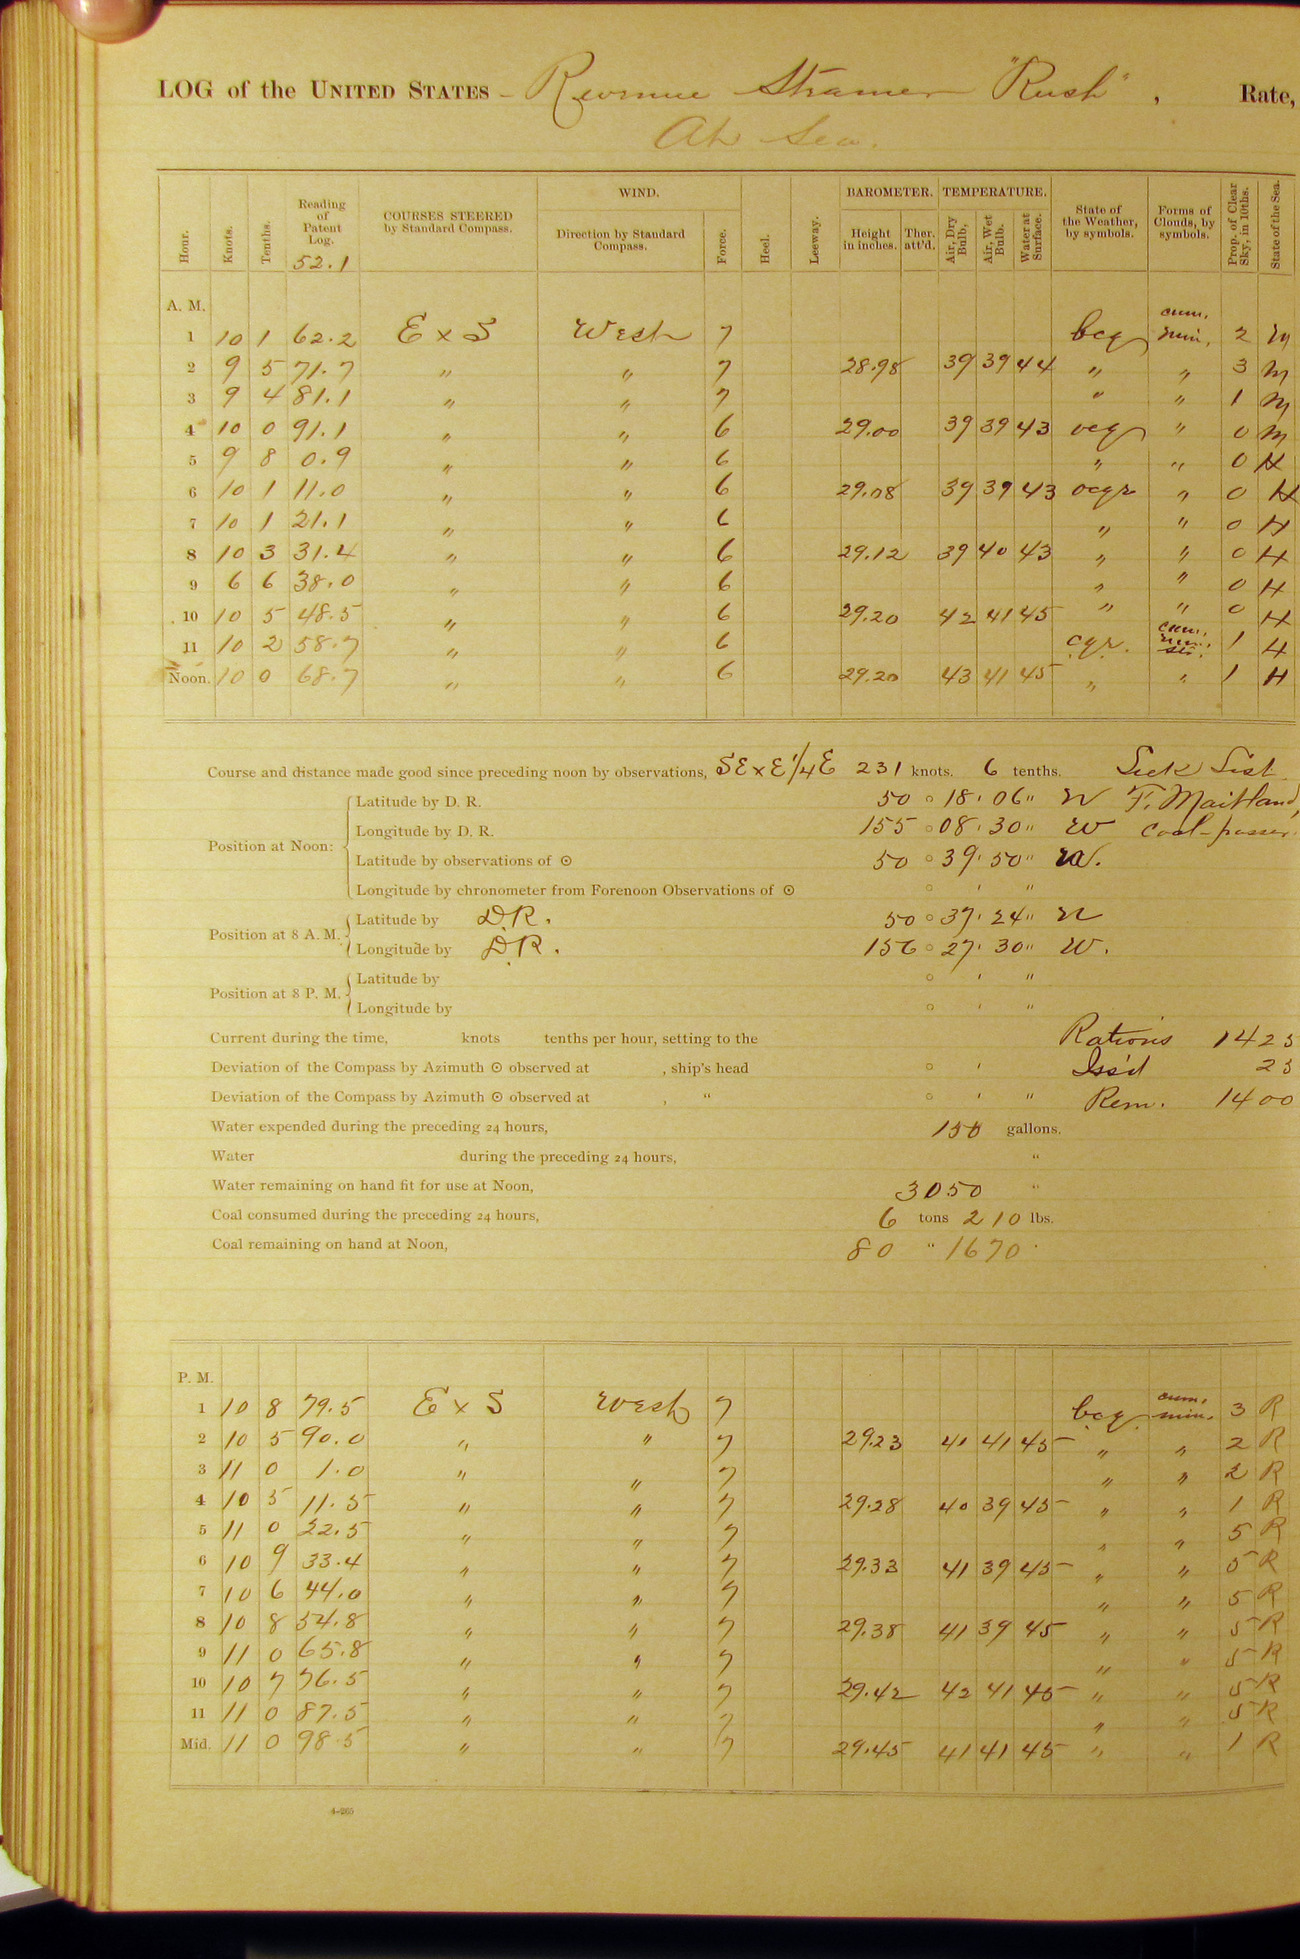 LOG of the UNITED STATES - Revenue Steamer "Rush", Rate,
At Sea.
Hour. Knots. Tenths. Reading of Patent Log. 52.1 COURSES STEERED by Standard Compass. WIND. Direction by Standard Compass. Force. Heel. Leeway. BAROMETER. Height in inches. Ther. att'd. TEMPERATURE. Air, Dry Bulb, Air, Wet Bulb. Water at Surface. State of the Weather, by symbols. Forms of Clouds, by symbols. Prop. of Clear Sky, in 10ths. State of the Sea.
A. M.
1 10 1 62.2 E x S West 7 bcq cum. nim. 2 M
2 9 5 71.7 " " 7 28.98 39 39 44 " " 3 M
3 9 4 81.1 " " 7 " " 1 M
4 10 0 91.1 " " 6 29.00 39 39 43 ocq " 0 M
5 9 8 0.9 " " 6 " " 0 H
6 10 1 11.0 " " 6 29.08 39 39 43 ocqr " 0 H
7 10 1 21.1 " " 6 " " 0 H
8 10 3 31.4 " " 6 29.12 39 40 43 " " 0 H
9 6 6 38.0 " " 6 " " 0 H
10 10 5 48.5 " " 6 29.20 42 41 45 " " 0 H
11 10 2 58.7 " " 6 cqr. cum. nim. str. 1 H
Noon. 10 0 68.7 " " 6 29.20 43 41 45 " " 1 H
Course and distance made good since preceding noon by observations, SE x E 1/4 E 231 knots. 6 tenths. Sick List
Position at Noon: Latitude by D. R. 50 ° 18 ' 06 " N F. Maitland,
Longitude by D. R. 155 ° 08 ' 30 " W coal-passer.
Latitude by observations of ☉ 50 ° 39 ' 50 " N.
Longitude by chronometer from Forenoon Observations of ☉ ° ' "
Position at 8 A. M. Latitude by D.R. 50 ° 37 ' 24 " N
Longitude by D.R. 156 ° 27 ' 30 " W.
Position at 8 P. M. Latitude by ° ' "
Longitude by ° ' "
Current during the time, knots tenths per hour, setting to the Rations 1423
Deviation of the Compass by Azimuth ☉ observed at , ship's head ° ' Iss'd 23
Deviation of the Compass by Azimuth ☉ observed at , " ° ' " Rem. 1400
Water expended during the preceding 24 hours, 150 gallons.
Water during the preceding 24 hours, "
Water remaining on hand fit for use at Noon, 3050 "
Coal consumed during the preceding 24 hours, 6 tons 210 lbs.
Coal remaining on hand at Noon, 80 " 1670 "
P. M.
1 10 8 79.5 E x S West 7 bcq cum. nim. 3 R
2 10 5 90.0 " " 7 29.23 41 41 45 " " 2 R
3 11 0 1.0 " " 7 " " 2 R
4 10 5 11.5 " " 7 29.28 40 39 45 " " 1 R
5 11 0 22.5 " " 7 " " 5 R
6 10 9 33.4 " " 7 29.33 41 39 45 " " 5 R
7 10 6 44.0 " " 7 " " 5 R
8 10 8 54.8 " " 7 29.38 41 39 45 " " 5 R
9 11 0 65.8 " " 7 " " 5 R
10 10 7 76.5 " " 7 29.42 42 41 45 " " 5 R
11 11 0 87.5 " " 7 " " 5 R
Mid. 11 0 98.5 " " 7 29.45 41 41 45 " " 1 R
4-265